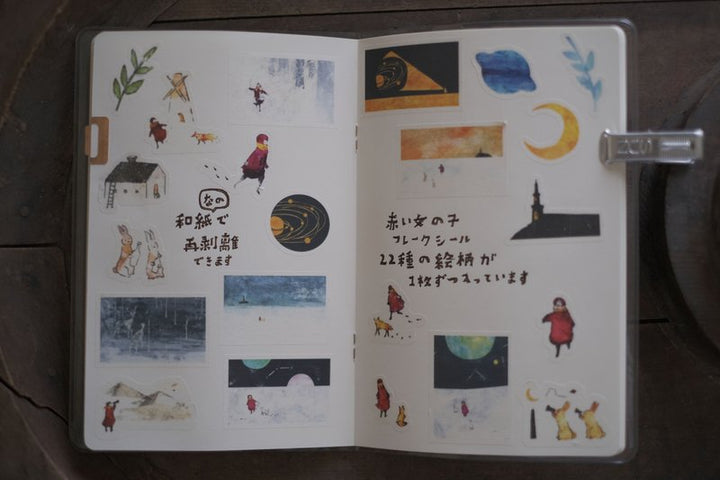 なの
和紙で
再剥離
できます
赤い女の子
フレークシール
22種の絵柄が
1枚ずつ入っています